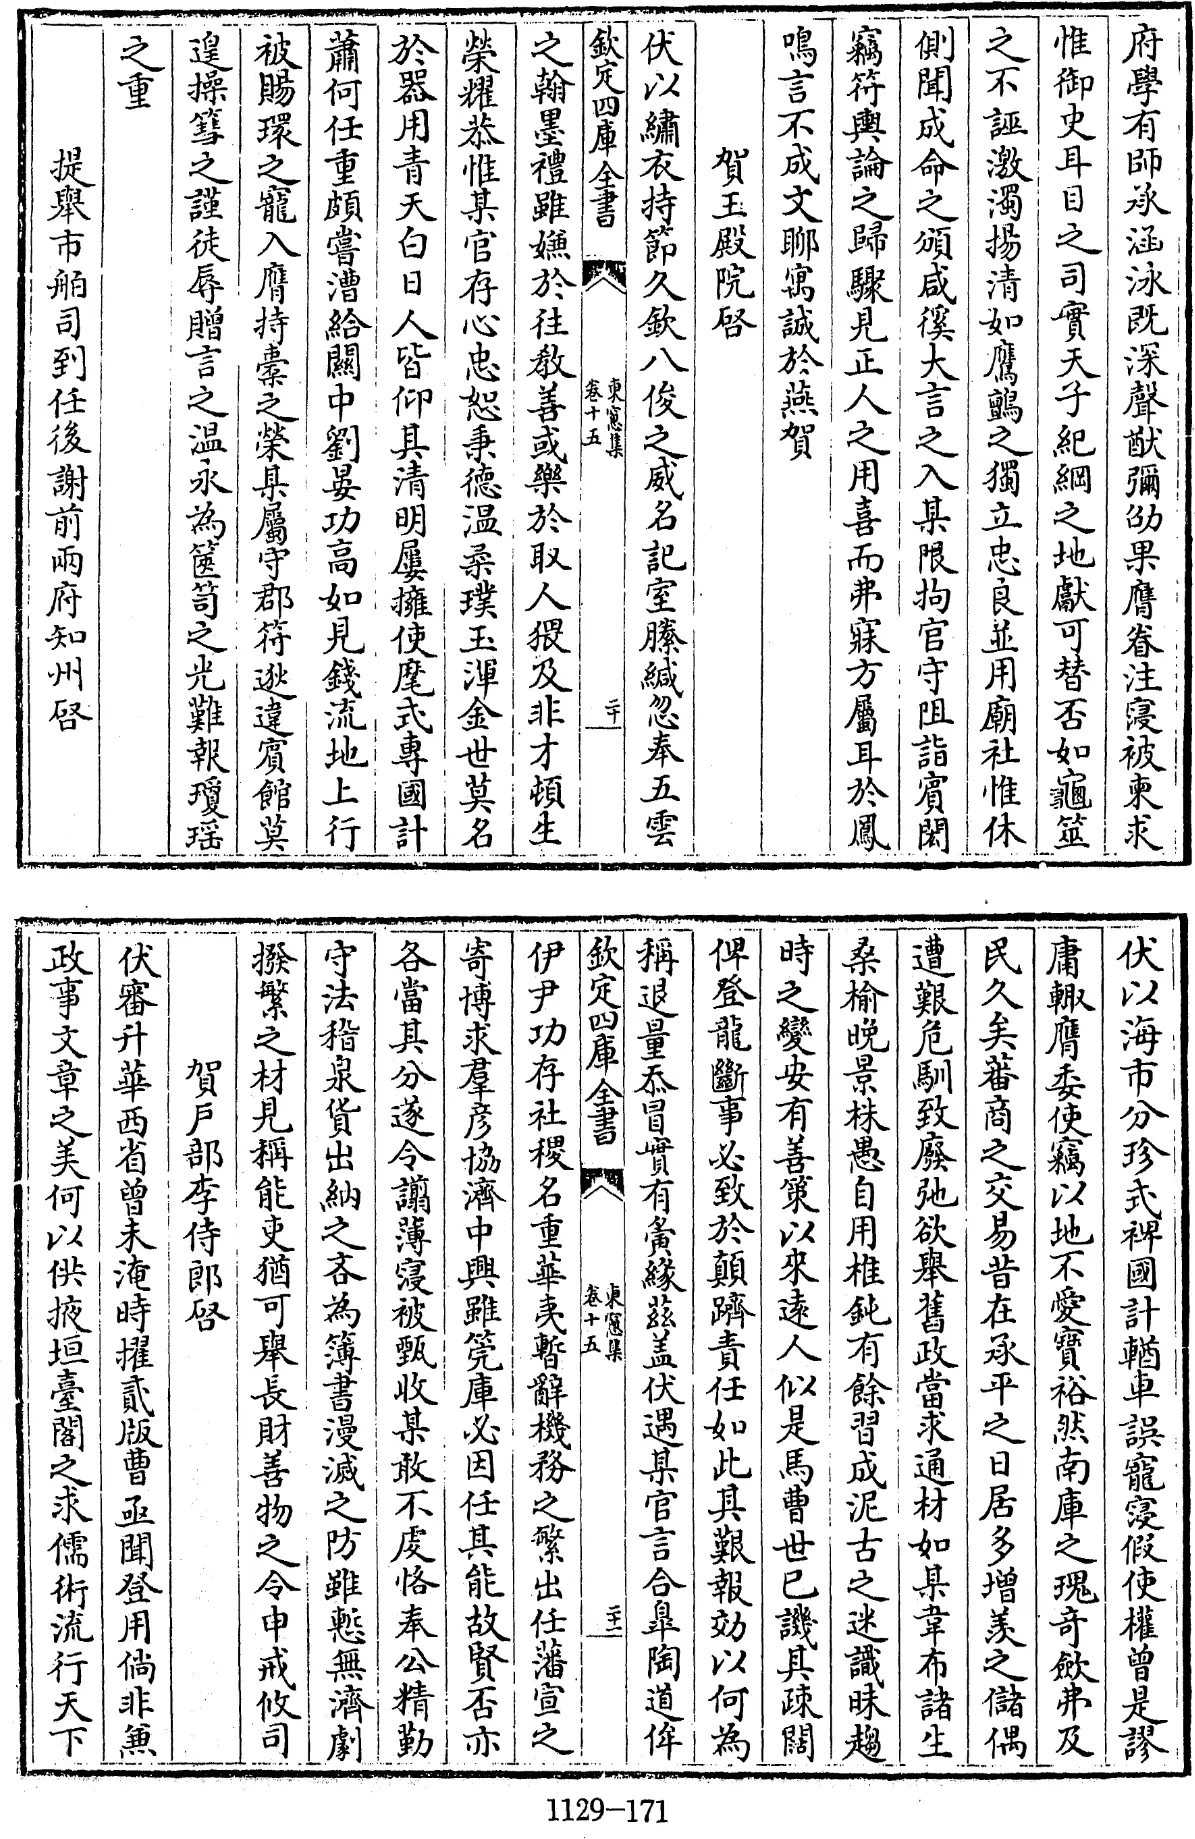 府學有師承涵泳既深聲猷彌劭果膺眷注寖被柬求
惟御史耳目之司實天子紀綱之地獻可替否如龜筮
之不誣激濁揚清如鷹鸇之獨立忠良並用廟社惟休
側聞成命之頒咸徯大言之入某限拘官守阻詣賓閎
竊符輿論之歸驟見正人之用喜而弗寐方屬耳於鳳
鳴言不成文聊寓誠於燕賀
賀王殿院啓
伏以繡衣持節久欽八俊之威名記室縢緘忽奉五雲
欽定四庫全書
東窻集
卷十五
二十
之翰墨禮雖嫌於往教善或樂於取人猥及非才頓生
榮耀恭惟某官存心忠恕秉德温柔璞玉渾金世莫名
於器用青天白日人皆仰其清明屢擁使麾式專國計
蕭何任重頗嘗漕給關中劉晏功高如見錢流地上行
被賜環之寵入膺持橐之榮某屬守郡符逖違賓館莫
遑操篲之謹徒辱贈言之温永為篋笥之光難報瓊瑶
之重
提舉市舶司到任後謝前兩府知州啓
伏以海市分珍式裨國計輶車誤寵寖假使權曾是謬
庸輙膺委使竊以地不愛寶裕然南庫之瑰奇歛弗及
民久矣蕃商之交易昔在承平之日居多增羡之儲偶
遭艱危馴致廢弛欲舉舊政當求通材如某韋布諸生
桑榆晩景株愚自用椎鈍有餘習成泥古之迷識昧趨
時之變安有善策以來遠人似是馬曹世已譏其疎闊
俾登龍斷事必致於顛躋責任如此其艱報効以何為
稱退量忝冒實有夤緣兹盖伏遇某官言合臯陶道侔
欽定四庫全書
東窻集
卷十五
二十一
伊尹功存社稷名重華夷暫辭機務之繁出任藩宣之
寄博求羣彦協濟中興雖筦庫必因任其能故賢否亦
各當其分遂令謭薄寖被甄收某敢不虔恪奉公精勤
守法稽泉貨出納之吝為簿書漫滅之防雖慙無濟劇
撥繁之材見稱能吏猶可舉長財善物之令申戒攸司
賀戶部李侍郎啓
伏審升華西省曾未淹時擢貳版曹亟聞登用倘非兼
政事文章之美何以供掖垣臺閣之求儒術流行天下
1129-171